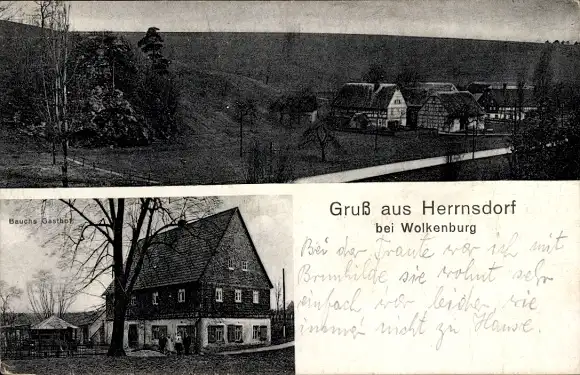 Bauchs Gasthof
Gruß aus Herrnsdorf
bei Wolkenburg
Bei der Traute war ich mit
Brunhilde, sie wohnt sehr
einfach, war leider, wie
immer nicht zu Hause.